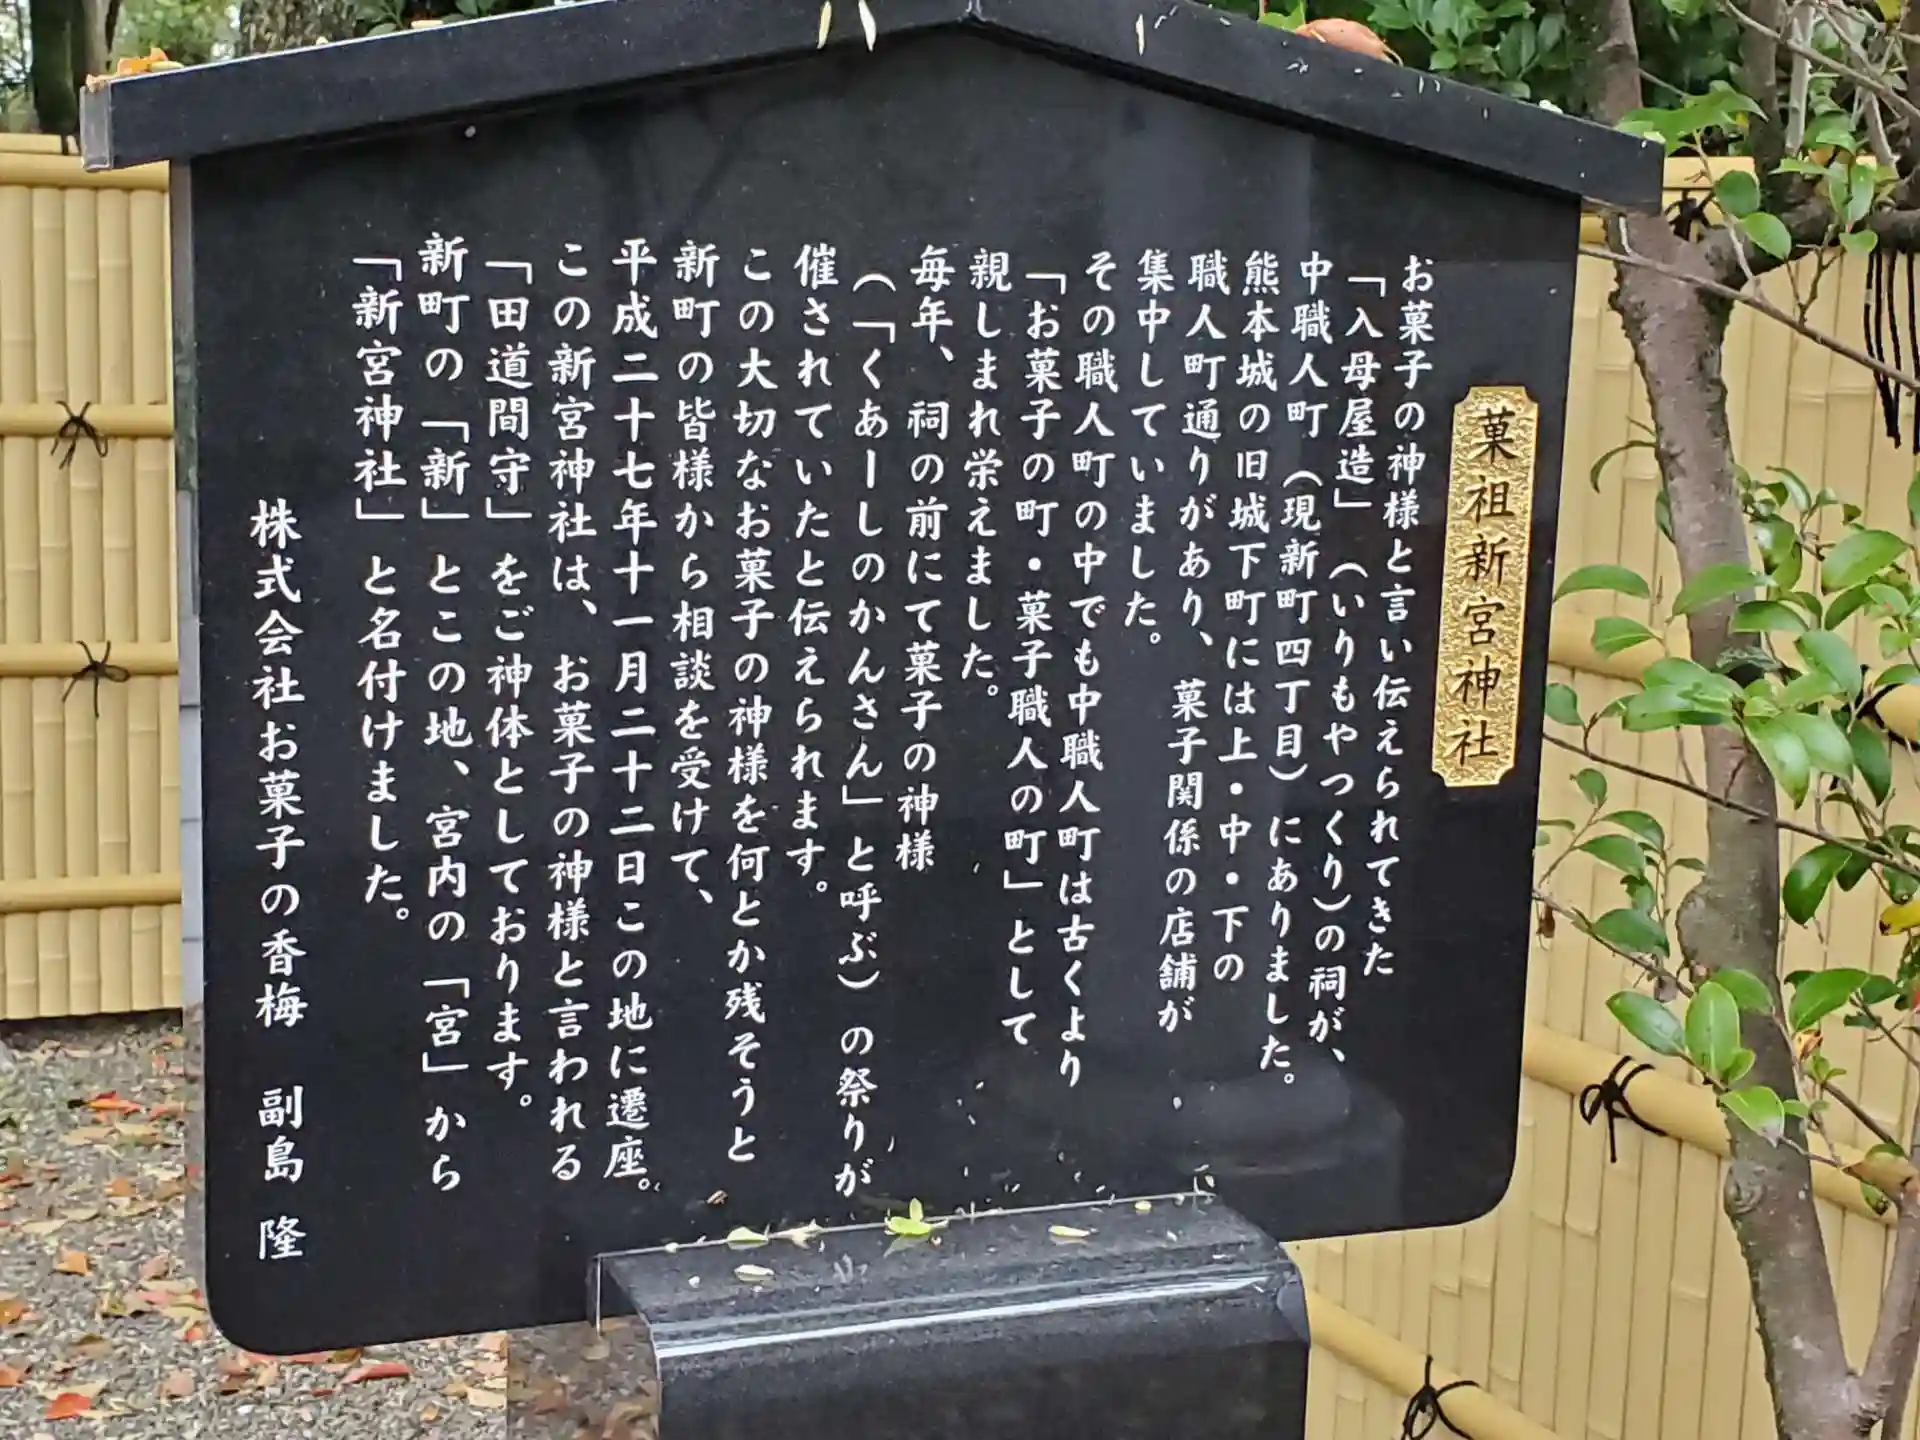 菓祖新宮神社
お菓子の神様と言い伝えられてきた
「入母屋造」（いりもやつくり）の祠が、
中職人町（現新町四丁目）にありました。
熊本城の旧城下町には上・中・下の
職人町通りがあり、菓子関係の店舗が
集中していました。
その職人町の中でも中職人町は古くより
「お菓子の町・菓子職人の町」として
親しまれ栄えました。
毎年、祠の前にて菓子の神様
（「くあーしのかんさん」と呼ぶ）の祭りが
催されていたと伝えられます。
この大切なお菓子の神様を何とか残そうと
新町の皆様から相談を受けて、
平成二十七年十一月二十二日この地に遷座。
この新宮神社は、お菓子の神様と言われる
「田道間守」をご神体としております。
新町の「新」とこの地、宮内の「宮」から
「新宮神社」と名付けました。
株式会社お菓子の香梅　副島　隆